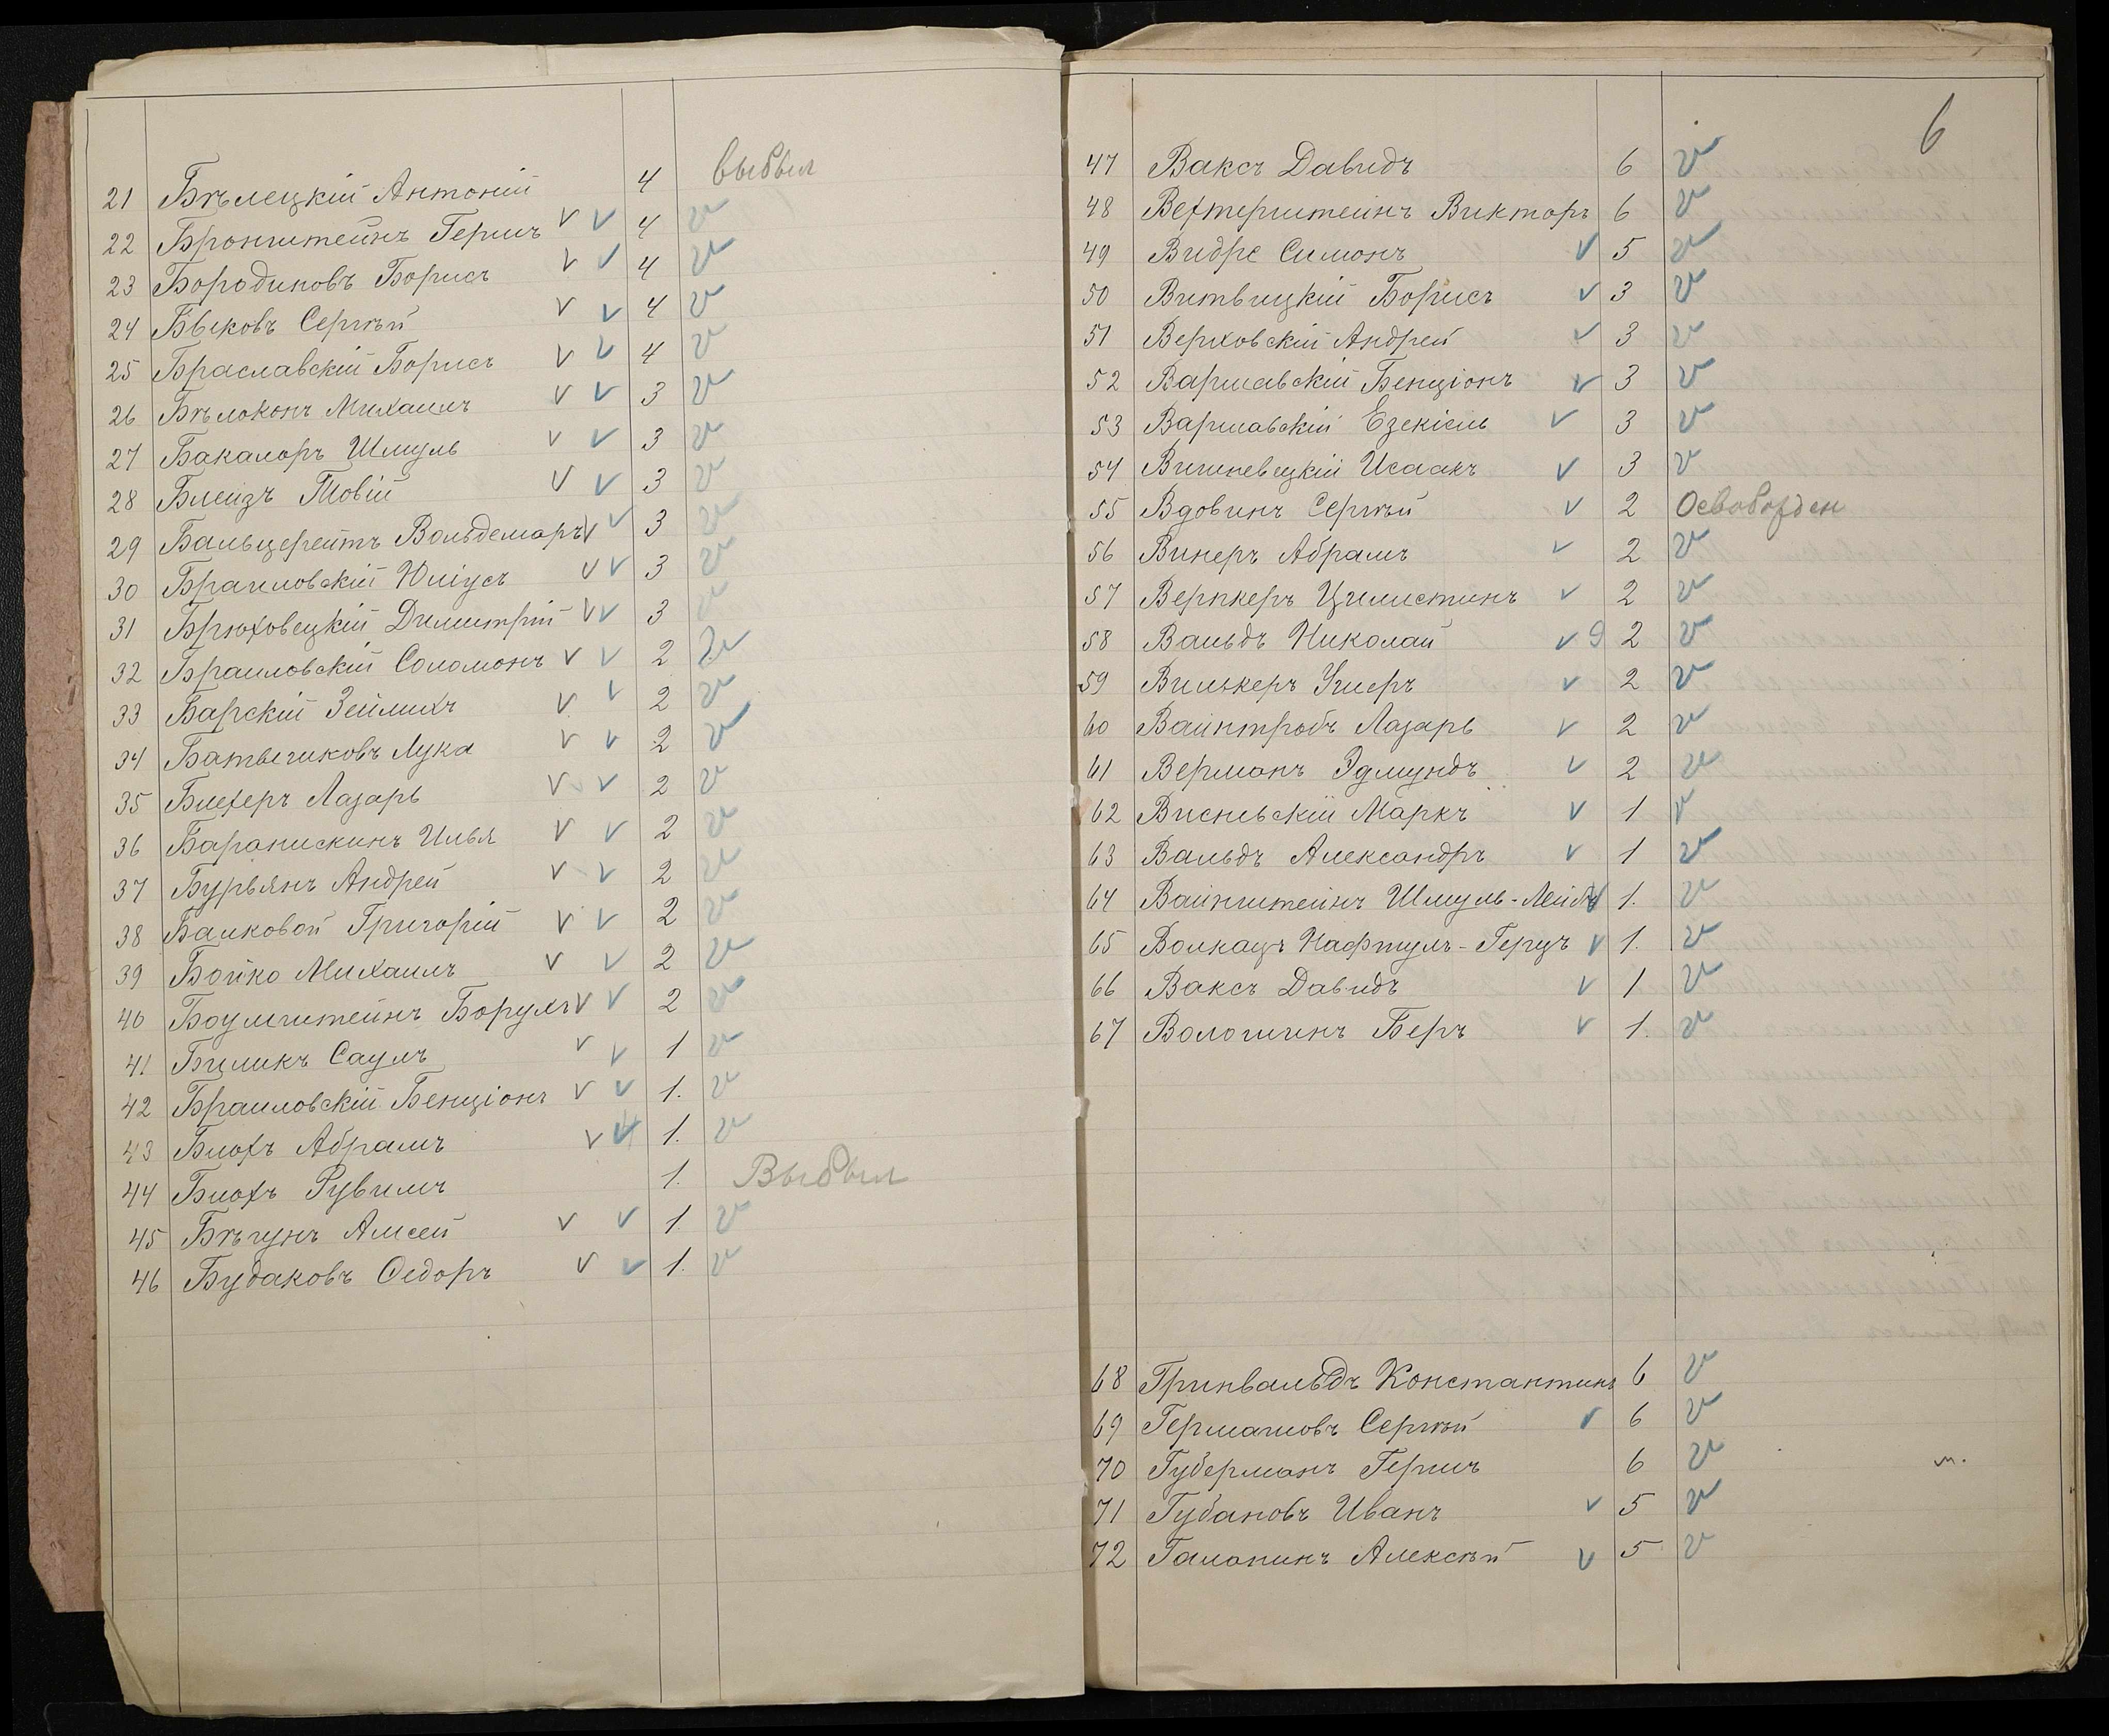 21 Бѣлецкій Антоній 4 выбыл
22 Бронштейнъ Гершъ V V 4 V
23 Бородиновъ Борисъ V V 4 V
24 Быковъ Сергѣй V V 4 V
25 Браславскій Борисъ V V 4 V
26 Бѣлоконъ Михаилъ V V 3 V
27 Бакалоръ Шмуль V V 3 V
28 Блейзъ Товій V V 3 V
29 Бальцерейтъ Вольдемаръ V V 3 V
30 Браиловскій Юліусъ V V 3 V
31 Брюховецкій Димитрій V V 3 V
32 Браиловскій Соломонъ V V 2 V
33 Барскій Зейлихъ V V 2 V
34 Батычиковъ Лука V V 2 V
35 Блехеръ Лазарь V V 2 V
36 Баранискинъ Илья V V 2 V
37 Бурьянъ Андрей V V 2 V
38 Балковой Григорій V V 2 V
39 Бойко Михаилъ V V 2 V
40 Боумштейнъ Борухъ V V 2 V
41 Биликъ Саулъ V V 1 V
42 Браиловскій Бенціонъ V V 1. V
43 Блохъ Абрамъ V V 1. V
44 Блохъ Рувимъ 1. Выбыл
45 Бѣгунъ Алсей V V 1. V
46 Будаковъ Ѳедоръ V V 1. V
6
47 Ваксъ Давидъ 6 V
48 Вехтерштейнъ Викторъ 6 V
49 Видре Симонъ V 5 V
50 Витвицкій Борисъ V 3 V
51 Верховскій Андрей V 3 V
52 Варшавскій Бенціонъ V 3 V
53 Варшавскій Езекіель V 3 V
54 Вишневецкій Исаакъ V 3 V
55 Вдовинъ Сергѣй V 2 Освобожден
56 Винеръ Абрамъ V 2 V
57 Вернкеръ Цилистинъ V 2 V
58 Вальдъ Николай V 2 V
59 Вилькеръ Ушеръ V 2 V
60 Вайнтробъ Лазарь V 2 V
61 Верманъ Эдмундъ V 2 V
62 Висневскій Маркъ V 1 V
63 Вальдъ Александръ V 1 V
64 Вайнштейнъ Шмуль-Лейбъ V 1. V
65 Волкацъ Нафтулъ-Герцъ V 1. V
66 Ваксъ Давидъ V 1 V
67 Волошинъ Беръ V 1. V
68 Гринвальдъ Константинъ 6 V
69 Гермашовъ Сергѣй V 6 V
70 Губерманъ Гершъ 6 V
71 Губановъ Иванъ V 5 V
72 Галапинъ Алексѣй V 5 V